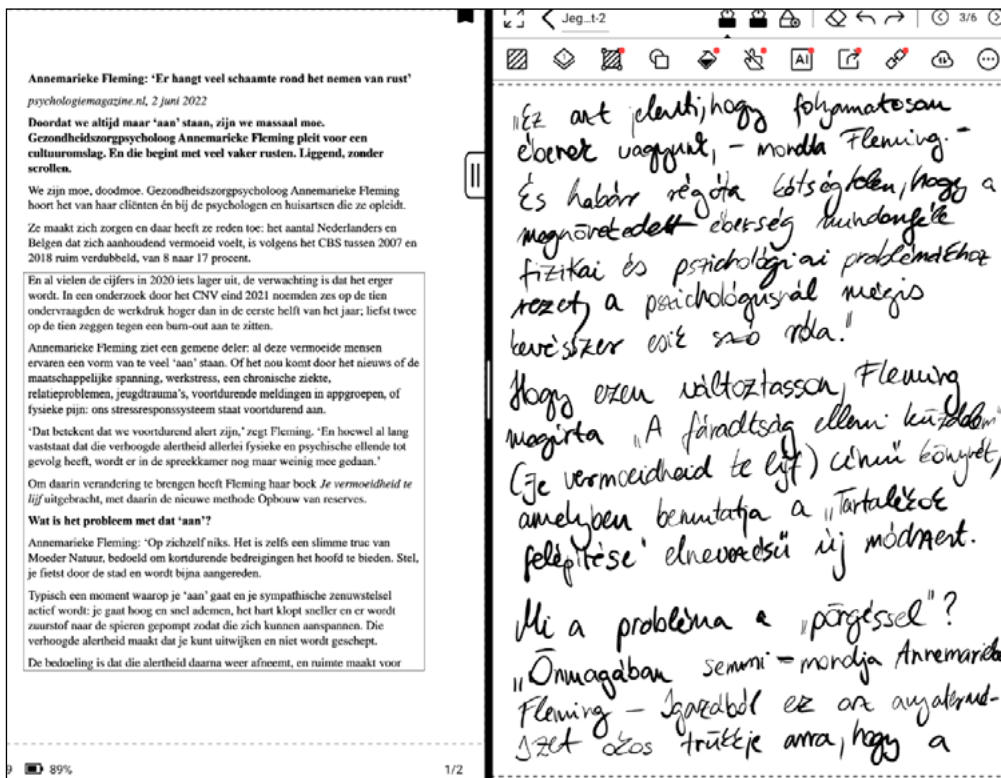 Annemarieke Fleming: ‘Er hangt veel schaamte rond het nemen van rust’
psychologiemagazine.nl, 2 juni 2022
Doordat we altijd maar ‘aan’ staan, zijn we massaal moe.
Gezondheidszorgpsycholoog Annemarieke Fleming pleit voor een
cultuuromslag. En die begint met veel vaker rusten. Liggend, zonder
scrollen.
We zijn moe, doodmoe. Gezondheidszorgpsycholoog Annemarieke Fleming
hoort het van haar cliënten én bij de psychologen en huisartsen die ze opleidt.
Ze maakt zich zorgen en daar heeft ze reden toe: het aantal Nederlanders en
Belgen dat zich aanhoudend vermoeid voelt, is volgens het CBS tussen 2007 en
2018 ruim verdubbeld, van 8 naar 17 procent.
En al vielen de cijfers in 2020 iets lager uit, de verwachting is dat het erger
wordt. In een onderzoek door het CNV eind 2021 noemden zes op de tien
ondervraagden de werkdruk hoger dan in de eerste helft van het jaar; liefst twee
op de tien zeggen tegen een burn-out aan te zitten.
Annemarieke Fleming ziet een gemene deler: al deze vermoeide mensen
ervaren een vorm van te veel ‘aan’ staan. Of het nou komt door het nieuws of de
maatschappelijke spanning, werkstress, een chronische ziekte,
relatieproblemen, jeugdtrauma’s, voortdurende meldingen in appgroepen, of
fysieke pijn: ons stressresponssysteem staat voortdurend aan.
‘Dat betekent dat we voortdurend alert zijn,’ zegt Fleming. ‘En hoewel al lang
vaststaat dat die verhoogde alertheid allerlei fysieke en psychische ellende tot
gevolg heeft, wordt er in de spreekkamer nog maar weinig mee gedaan.’
Om daarin verandering te brengen heeft Fleming haar boek Je vermoeidheid te
lijf uitgebracht, met daarin de nieuwe methode Opbouw van reserves.
Wat is het probleem met dat ‘aan’?
Annemarieke Fleming: ‘Op zichzelf niks. Het is zelfs een slimme truc van
Moeder Natuur, bedoeld om kortdurende bedreigingen het hoofd te bieden. Stel,
je fietst door de stad en wordt bijna aangereden.
Typisch een moment waarop je ‘aan’ gaat en je sympathische zenuwstelsel
actief wordt: je gaat hoog en snel ademen, het hart klopt sneller en er wordt
zuurstof naar de spieren gepompt zodat die zich kunnen aanspannen. Die
verhoogde alertheid maakt dat je kunt uitwijken en niet wordt geschept.
De bedoeling is dat die alertheid daarna weer afneemt, en ruimte maakt voor
9 89% 1/2
Jeg...t-2 3/6
AI
„Ez azt jelenti, hogy folyamatosan
éberek vagyunk, – mondta Fleming. –
És habár régóta kétségtelen, hogy a
megnövekedett éberség mindenféle
fizikai és pszichológiai problémákhoz
vezet, a pszichológusnál mégis
kevésszer esik szó róla."
Hogy ezen változtasson, Fleming
megírta „A fáradtság elleni küzdelem"
(Je vermoeidheid te lijf) című könyvét,
amelyben bemutatja a „Tartalékok
felépítése" elnevezésű új módszert.
Mi a probléma a „pörgéssel"?
„Önmagában semmi – mondja Annemarieke
Fleming – Igazából ez az anyatermé-
szet okos trükkje arra, hogy a